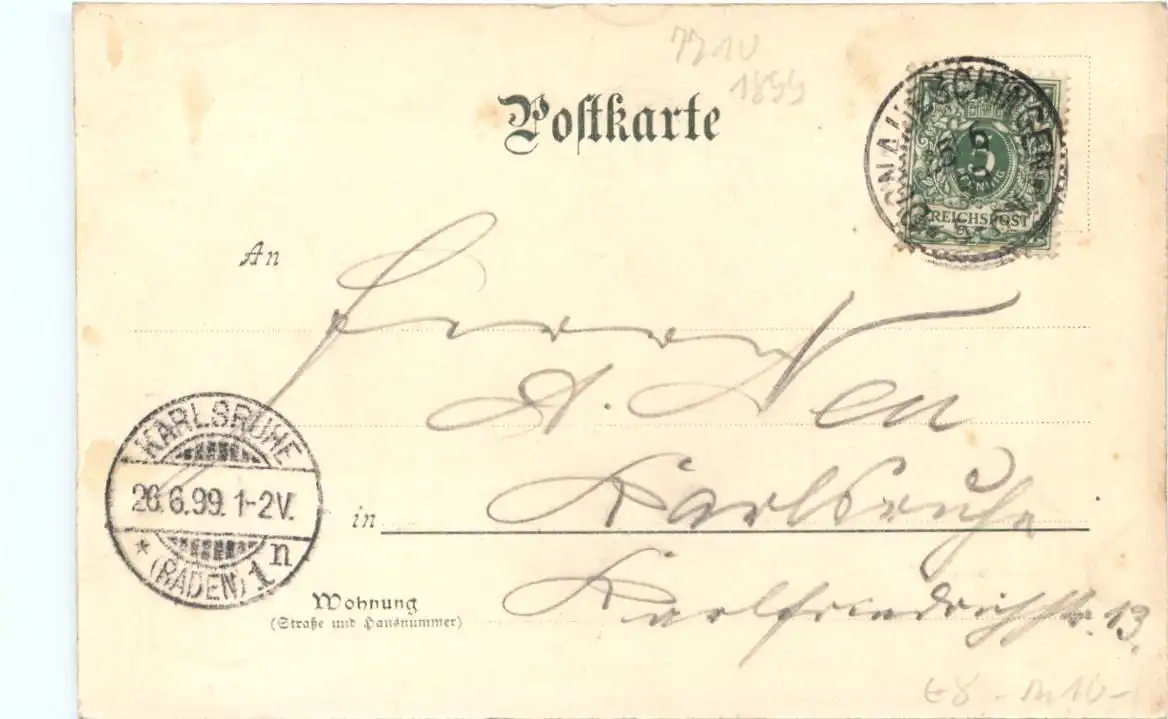 7710
1899
Postkarte
DONAUESCHINGEN
5
PFENNIG
REICHSPOST
An
Herrn
A. Neu
KARLSRUHE
26.6.99. 1-2V.
* (BADEN) 1 n
in Karlsruhe
Wohnung
(Straße und Hausnummer)
Karlfriedrichstr. 13.